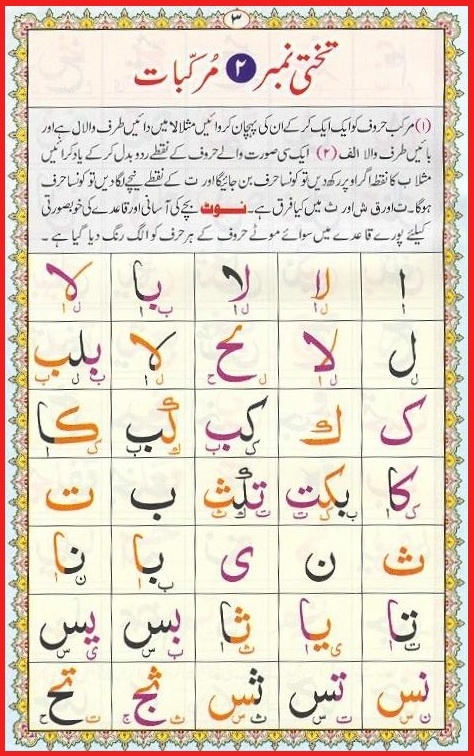 ۳
تختی نمبر ۲ مرکبات
(۱) مرکب حروف کو ایک ایک کر کے ان کی پہچان کروائیں مثلا لا میں دائیں طرف والا ل ہے اور
بائیں طرف والا الف (۲) ایک سی صورت والے حروف کے نقطے ردوبدل کر کے یاد کرائیں
مثلا ب کا نقطہ اگر اوپر رکھ دیں تو کونسا حرف بن جائیگا اور ت کے نقطے نیچے لگا دیں تو کونسا حرف
ہوگا۔ ت اور ق ش اور ث میں کیا فرق ہے۔ نوٹ بچے کی آسانی اور قاعدے کی خوبصورتی
کیلئے پورے قاعدے میں سوائے موٹے حروف کے ہر حرف کو الگ رنگ دیا گیا ہے۔
ا لا لا با لا
ل ا ل ا ب ا ل ا
ل لا لح لا بلب
ل ا ل ح ل ا ب ل ب
ک ك کب كب کا
ک ب ك ب ک ا
کا بکت تكث ب ت
ک ا ب ک ت ت ك ث
ث ن ی با نا
ب ا ن ا
تا یا ثا بس یس
ت ا ی ا ث ا ب ی
نس تس ثس ثج تح
ن ت ث ث ج ت ح